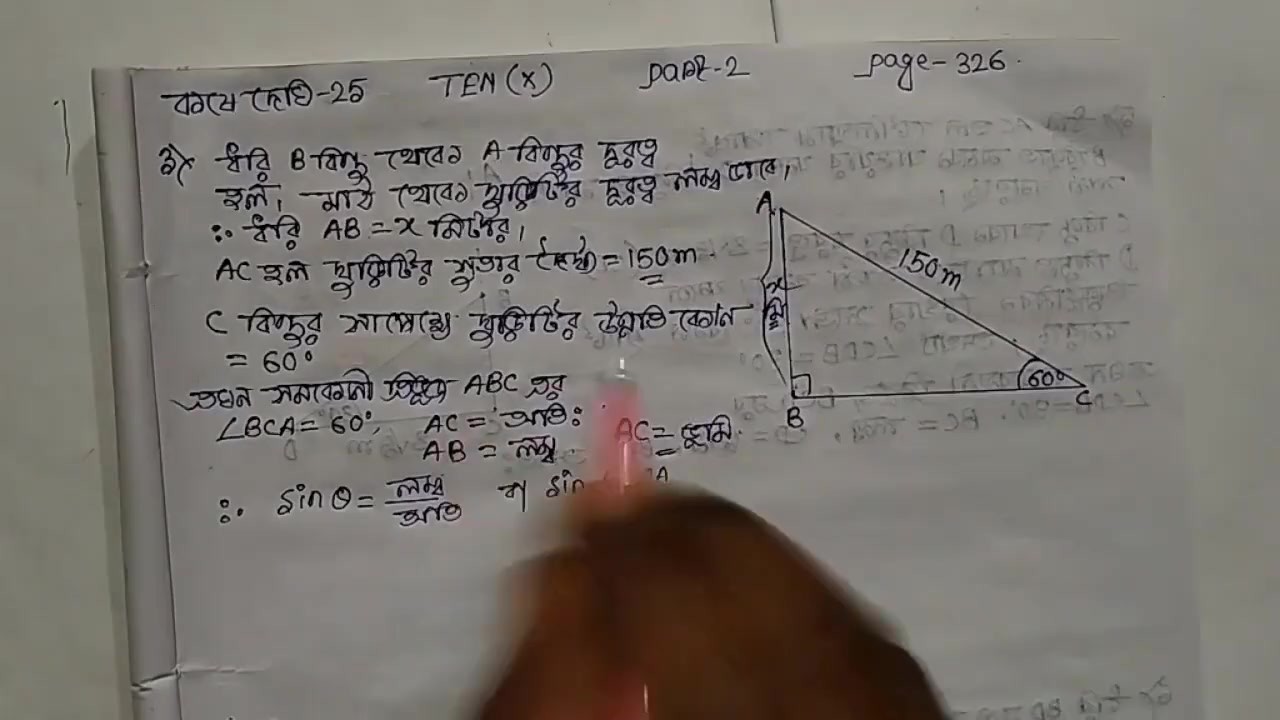 কষে দেখি-25 TEN (X) part-2 page-326.
৩) ধরি B বিন্দু থেকে A বিন্দুর দূরত্ব
হল, মাঠ থেকে ঘুড়িটির দূরত্ব লম্ব ভাবে,
∴ ধরি AB = x মিটার,
AC হল ঘুড়িটির সুতার দৈর্ঘ্য = 150m
C বিন্দুর সাপেক্ষে ঘুড়িটির উন্নতি কোন
= 60°
এখন সমকোণী ত্রিভুজ ABC এর
∠BCA = 60°, AC = অতিঃ
AB = লম্ব AC = ভূমি.
∴ sin θ = লম্ব/অতি বা sin
A
150m
x মি
60°
B
C